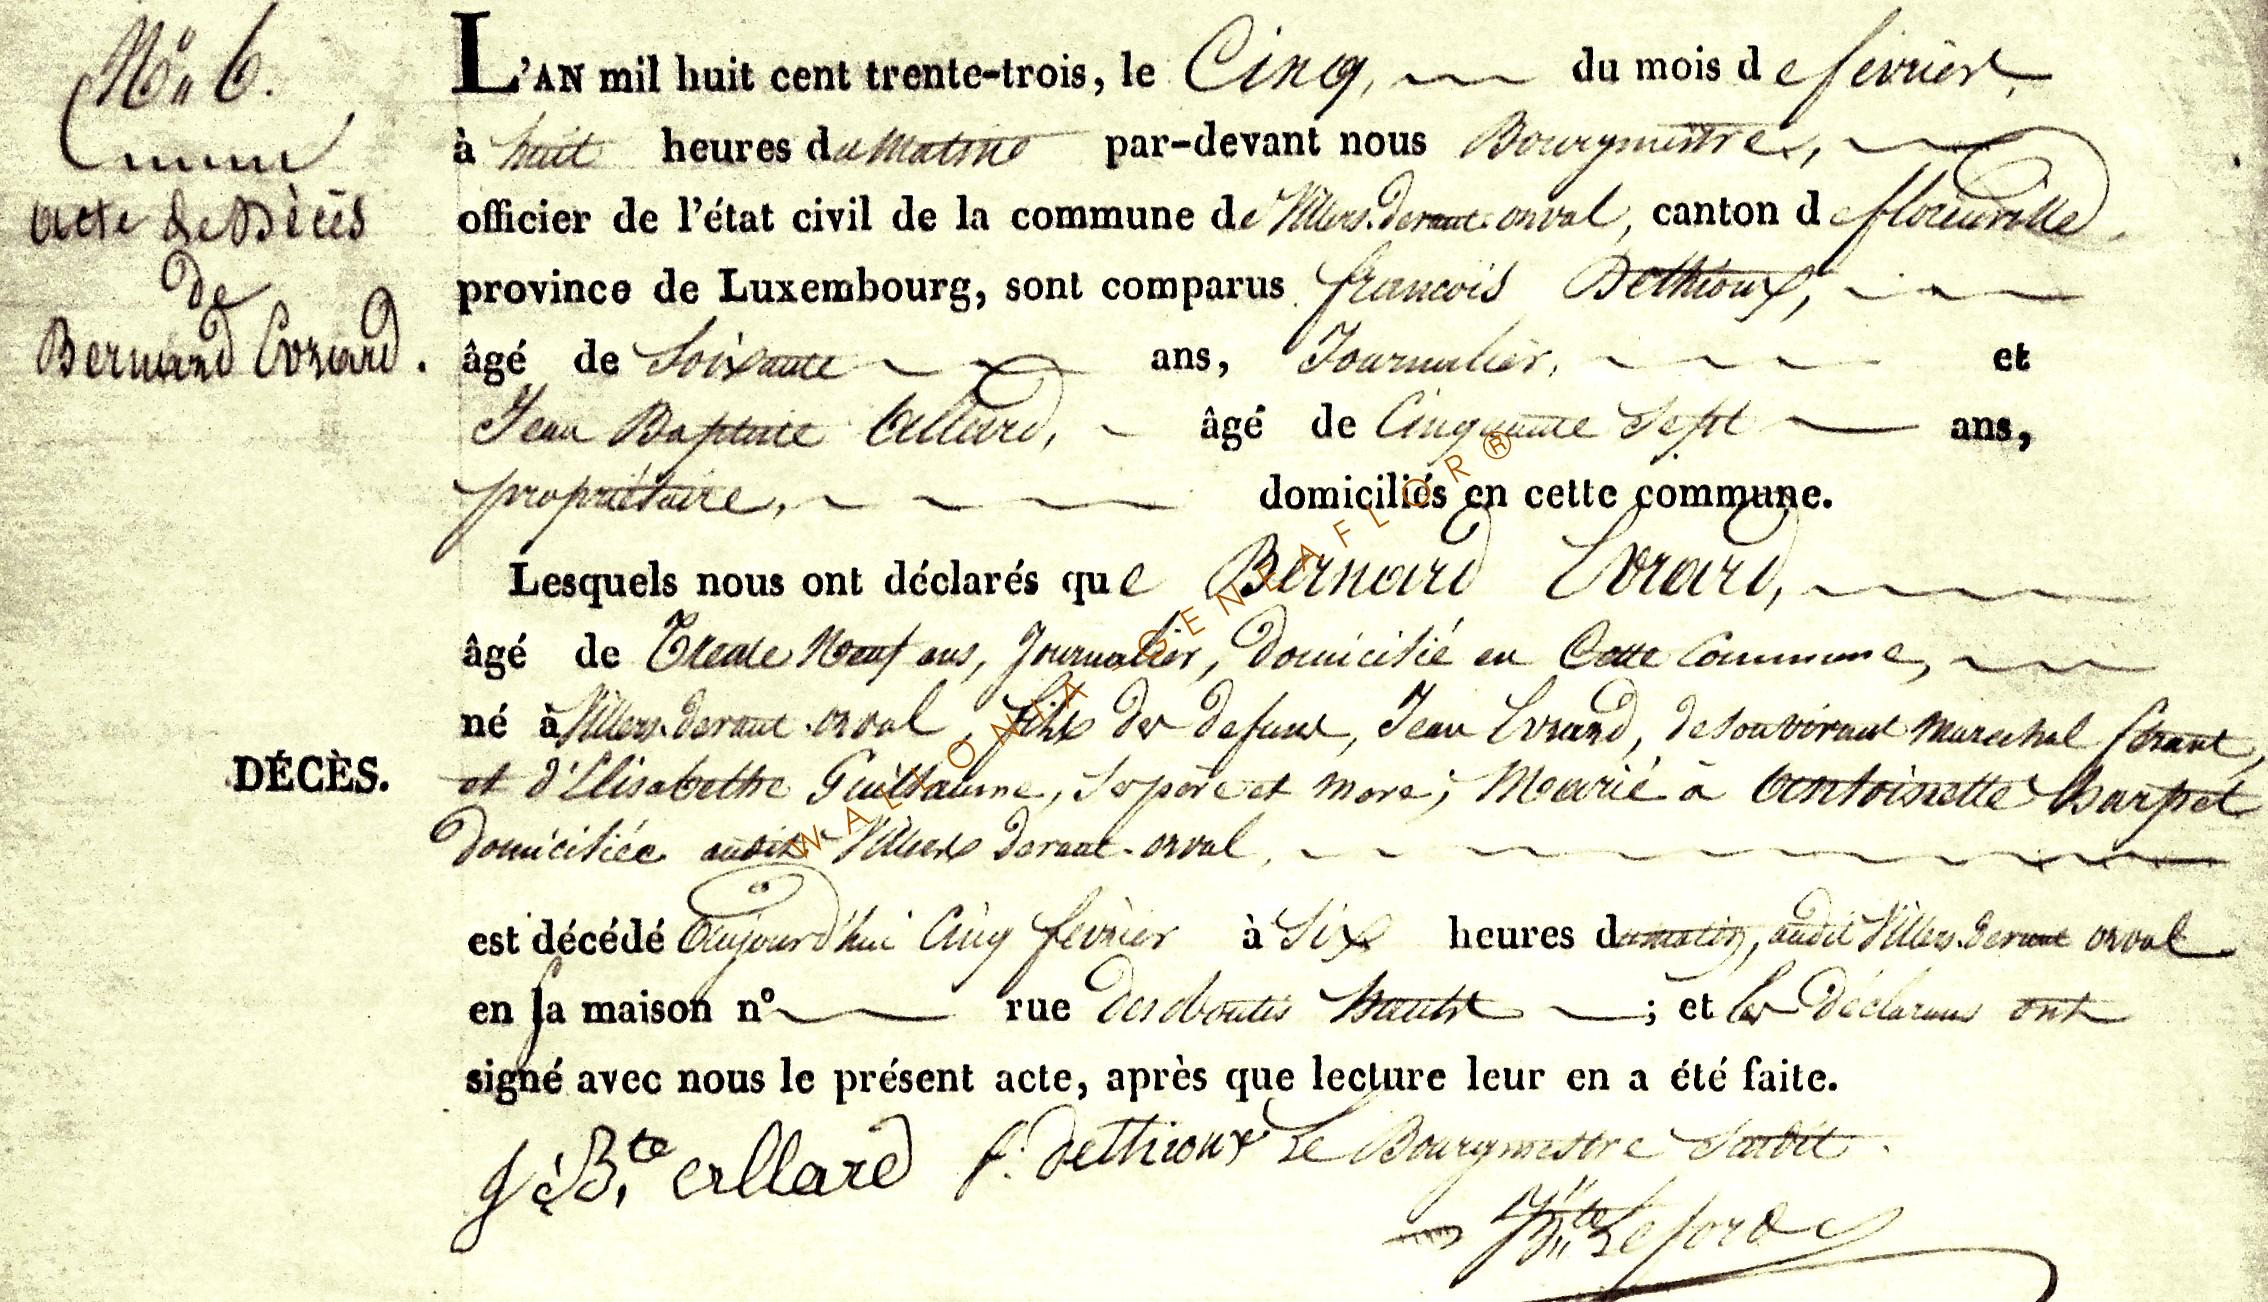 N° 6.
acte de Décès
de
Bernard Evrard.
DÉCÈS.
L'AN mil huit cent trente-trois, le Cinq, du mois de fevrier,
à huit heures du Matin par-devant nous Bourgmestre,
officier de l'état civil de la commune de Villers-devant-orval, canton de florenville,
province de Luxembourg, sont comparus francois Dethioux,
âgé de Soixante ans, Journalier, et
Jean Baptiste Allard, âgé de Cinquante Sept ans,
propriétaire, domiciliés en cette commune.
Lesquels nous ont déclarés que Bernard Evrard,
âgé de Trente Neuf ans, Journalier, Domicilié en Cette Commune,
né à Villers-devant-orval, fils de defunt, Jean Evrard, de Souvivant Marechal ferant,
et d'Elisabethe Guillaume, Ses père et mere; Marié à Antoinette
Domiciliée audit Villers devant-orval,
est décédé Aujourd'hui Cinq fevrier à Six heures du matin, audit Villers-devant orval
en sa maison n° rue des hauts; et les Déclarans ont
signé avec nous le présent acte, après que lecture leur en a été faite.
J: B.te allard f: dethioux Le Bourgmestre Susdit.
WALLONIA GENEAFLOR®